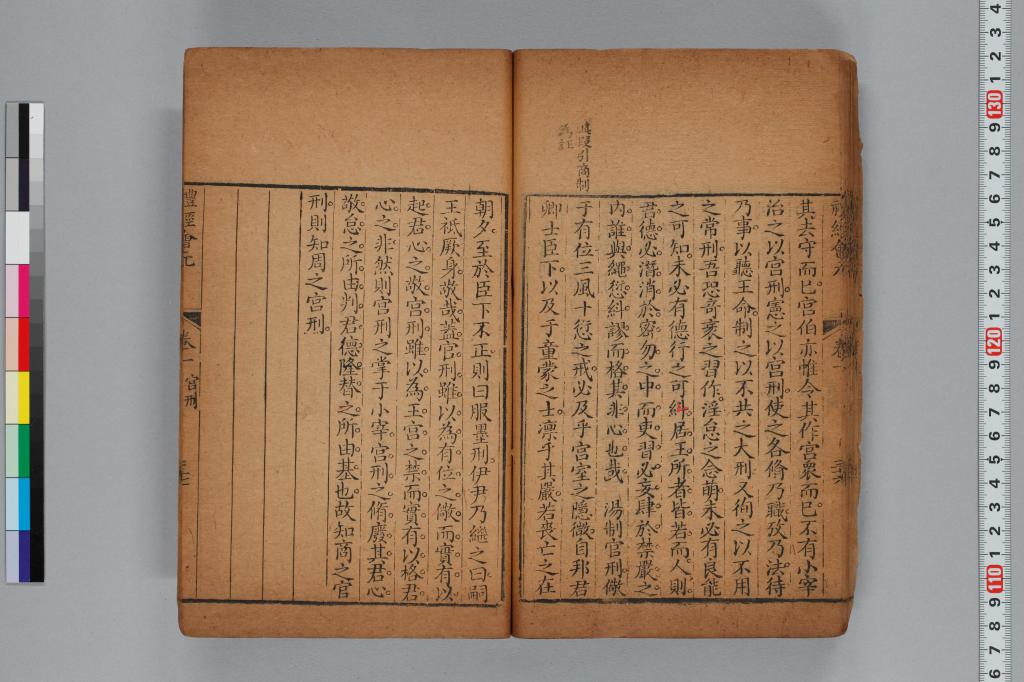 其去守而已宮伯亦惟令其作宮衆而已不有小宰
治之以宮刑憲之以宮刑使之各脩乃職攷乃法待
乃事以聽王命制之以不共之大刑又徇之以不用
之常刑吾恐奇衺之習作淫怠之念萌未必有良能
之可知未必有德行之可糾居王所者皆若而人則
君德必潛消於宻勿之中而吏習必妄肆於禁嚴之
内誰與繩愆糾謬而格其非心也哉 湯制官刑儆
于有位三風十愆之戒必及乎宮室之隱微自邦君
卿士臣下以及于童蒙之士凛乎其嚴若喪亡之在
段引商制
為証
朝夕至於臣下不正則曰服墨刑伊尹乃繼之曰嗣
王祗厥身故哉蓋官刑雖以為有位之儆而實有以
起君心之敬宮刑雖以為王宮之禁而實有以格君
心之非然則宮刑之掌于小宰宮刑之脩廢其君心
敬怠之所由判君德隆替之所由基也故知商之官
刑則知周之宮刑
禮經會元
卷一 宮刑